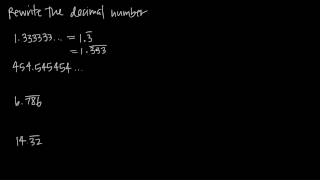 Rewrite the decimal number
1.333333... = 1.3̅
= 1.3̅3̅3̅
454.545454...
6.7̅8̅6̅
14.3̅2̅